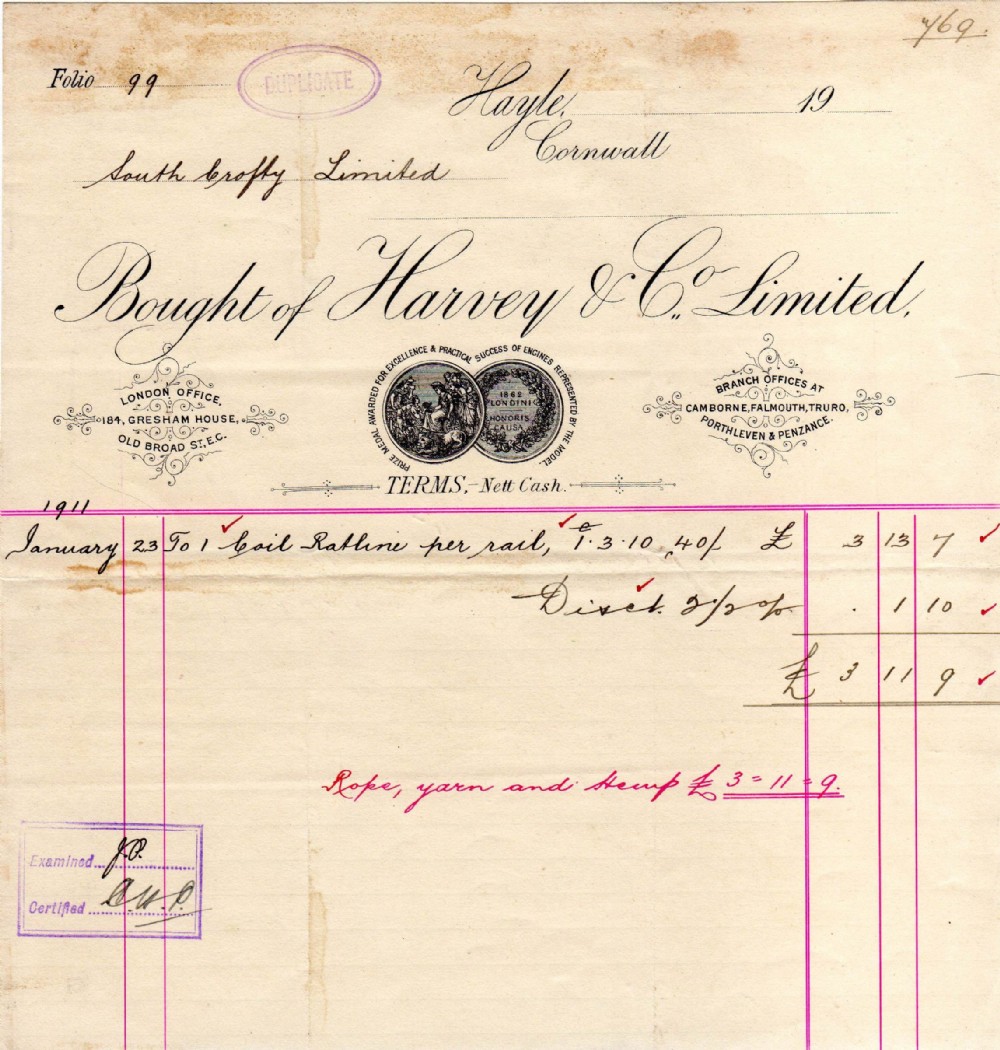 769.
Folio 99
DUPLICATE
Hayle, 19
Cornwall
South Crofty Limited
Bought of Harvey & Co. Limited.
LONDON OFFICE,
184, GRESHAM HOUSE,
OLD BROAD ST, E.C.
PRIZE MEDAL AWARDED FOR EXCELLENCE & PRACTICAL SUCCESS OF ENGINES REPRESENTED BY THE MODEL.
1862
LONDINI
HONORIS
CAUSA
BRANCH OFFICES AT
CAMBORNE, FALMOUTH, TRURO,
PORTHLEVEN & PENZANCE.
TERMS, - Nett Cash.
1911
January 23 To 1 Coil Ratline per rail, c 1.3.10 40/- £ 3 13 7
Disct. 2 1/2 % . 1 10
£ 3 11 9
Rope, yarn and Hemp £ 3=11=9.
Examined J.P.
Certified